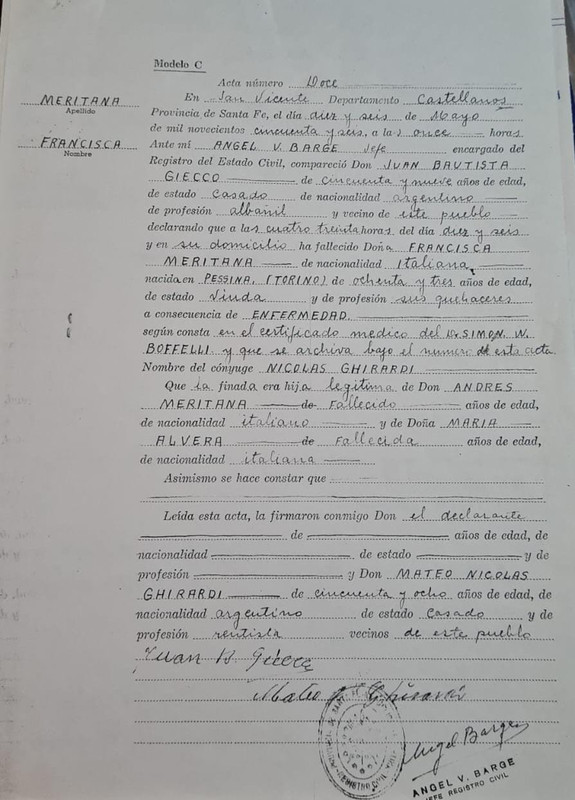 Modelo C
Acta número Doce
MERITANA
Apellido
FRANCISCA
Nombre
En San Vicente Departamento Castellanos
Provincia de Santa Fe, el día diez y seis de Mayo
de mil novecientos cincuenta y seis, a las once horas
Ante mí ANGEL V. BARGE Jefe encargado del
Registro del Estado Civil, compareció Don JUAN BAUTISTA
GIECCO de cincuenta y nueve años de edad,
de estado Casado de nacionalidad argentino
de profesión albañil y vecino de este pueblo
declarando que a las cuatro treinta horas del día diez y seis
y en su domicilio ha fallecido Doña FRANCISCA
MERITANA de nacionalidad Italiana,
nacida en PESSINA, (TORINO) de ochenta y tres años de edad,
de estado Viuda y de profesión sus quehaceres
a consecuencia de ENFERMEDAD
según consta en el certificado medico del Dr. SIMON. W.
BOFFELLI y que se archiva bajo el numero de esta acta
Nombre del cónyuge NICOLAS GHIRARDI
Que la finada era hija legitima de Don ANDRES
MERITANA de Fallecido años de edad,
de nacionalidad italiano y de Doña MARIA
ALVERA de Fallecida años de edad,
de nacionalidad italiana
Asimismo se hace constar que
Leída esta acta, la firmaron conmigo Don el declarante
de años de edad, de
nacionalidad de estado y de
profesión y Don MATEO NICOLAS
GHIRARDI de cincuenta y ocho años de edad, de
nacionalidad argentino de estado Casado y de
profesión rentista vecinos de este pueblo
Juan B Giecco
Mateo Ghirardi
Angel Barge
REGISTRO CIVIL
ANGEL V. BARGE
JEFE REGISTRO CIVIL